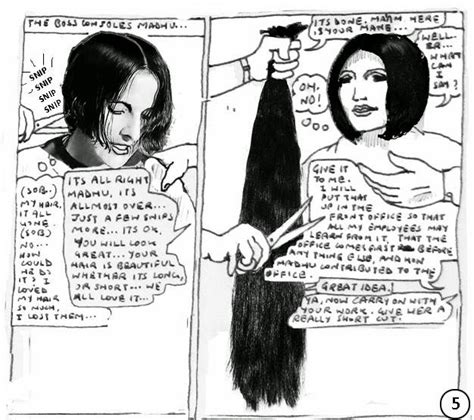 THE BOSS CONSOLES MADHU...
SNIP
SNIP
SNIP
SNIP
(SOB..)
MY HAIR,
IT ALL
GONE.
(SOB)
NO...
HOW
COULD
HE DO
IT? I
LOVED
MY HAIR
SO MUCH,
I LOST THEM...
ITS ALL RIGHT
MADHU, ITS
ALLMOST OVER...
JUST A FEW SNIPS
MORE... ITS OK.
YOU WILL LOOK
GREAT... YOUR
HAIR IS BEAUTIFUL
WHETHER ITS LONG,
OR SHORT... WE
ALL LOVE IT...
ITS DONE, MA'AM HERE
IS YOUR MANE...
WELL..
ER...
WHAT
CAN I
SAY?
OH,
NO!
GIVE IT
TO ME.
I WILL
PUT THAT
UP IN THE
FRONT OFFICE SO THAT
ALL MY EMPLOYEES MAY
LEARN FROM IT, THAT THE
OFFICE COMES FIRST BEFORE
ANYTHING ELSE, AND HOW
MADHU CONTRIBUTED TO THE
OFFICE.
GREAT IDEA.
YA, NOW CARRY ON WITH
YOUR WORK. GIVE HER A
REALLY SHORT CUT.
5